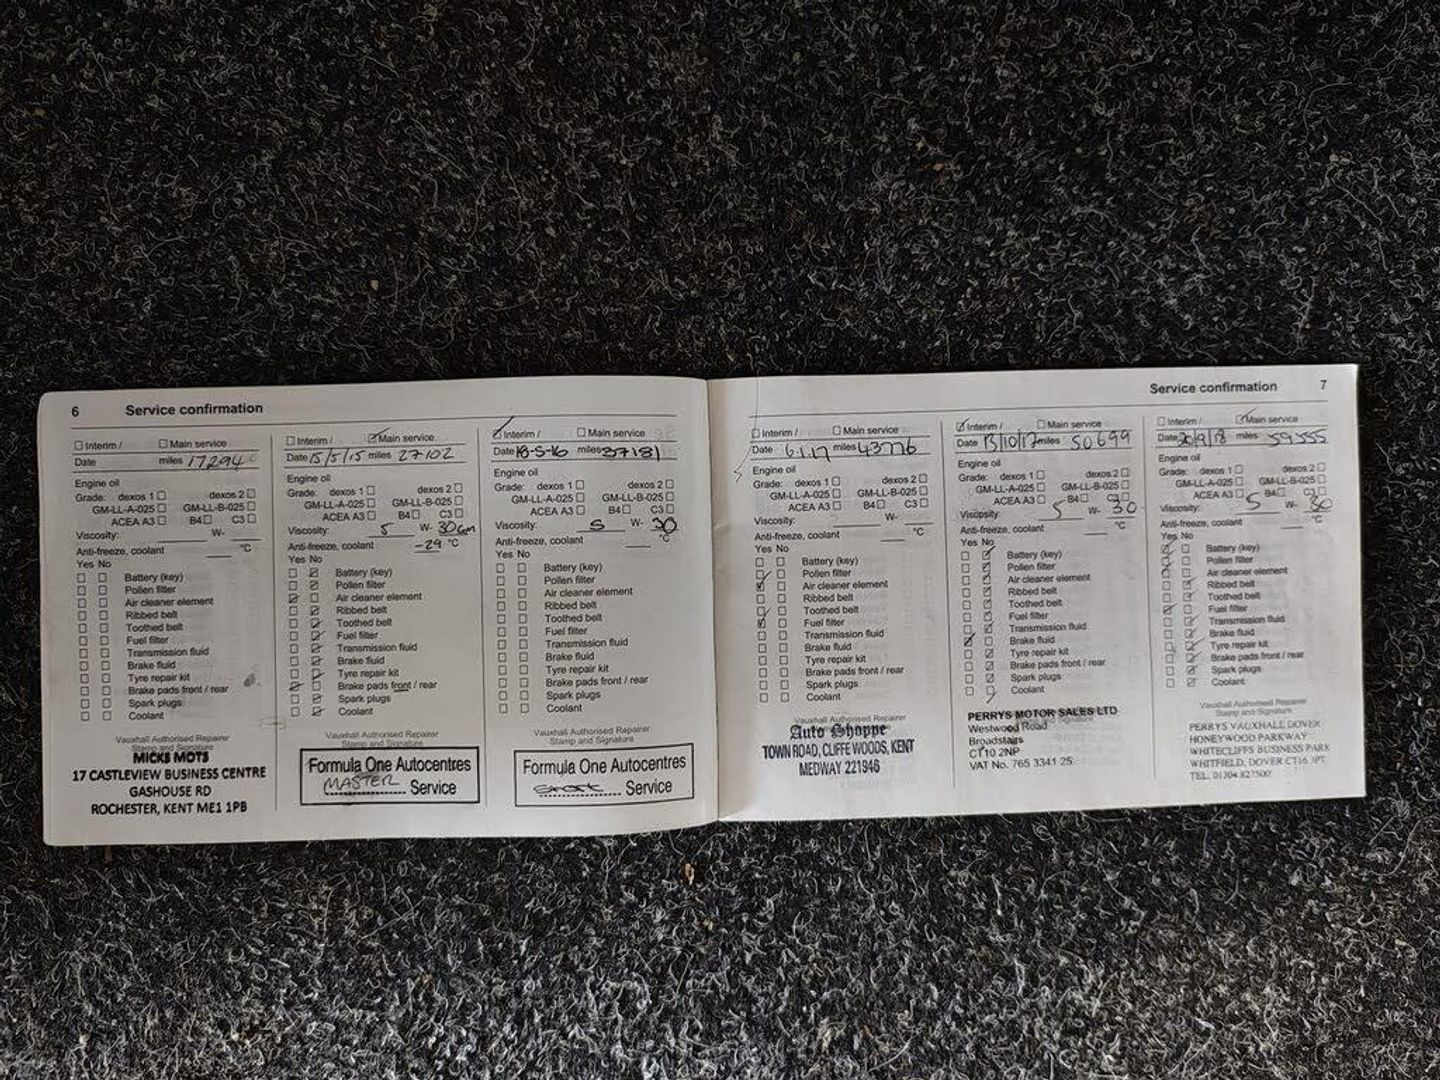 6 Service confirmation
☐ Interim / ☐ Main service
Date miles 17294
Engine oil
Grade: dexos 1 ☐ dexos 2 ☐
GM-LL-A-025 ☐ GM-LL-B-025 ☐
ACEA A3 ☐ B4 ☐ C3 ☐
Viscosity: W-
Anti-freeze, coolant °C
Yes No
☐ ☐ Battery (key)
☐ ☐ Pollen filter
☐ ☐ Air cleaner element
☐ ☐ Ribbed belt
☐ ☐ Toothed belt
☐ ☐ Fuel filter
☐ ☐ Transmission fluid
☐ ☐ Brake fluid
☐ ☐ Tyre repair kit
☐ ☐ Brake pads front / rear
☐ ☐ Spark plugs
☐ ☐ Coolant
Vauxhall Authorised Repairer
Stamp and Signature
MICKS MOTS
17 CASTLEVIEW BUSINESS CENTRE
GASHOUSE RD
ROCHESTER, KENT ME1 1PB
☐ Interim / ☑ Main service
Date 15/5/15 miles 27102
Engine oil
Grade: dexos 1 ☐ dexos 2 ☐
GM-LL-A-025 ☐ GM-LL-B-025 ☐
ACEA A3 ☐ B4 ☐ C3 ☐
Viscosity: 5 W- 30
Anti-freeze, coolant -29 °C
Yes No
Battery (key)
Pollen filter
Air cleaner element
Ribbed belt
Toothed belt
Fuel filter
Transmission fluid
Brake fluid
Tyre repair kit
Brake pads front / rear
Spark plugs
Coolant
Vauxhall Authorised Repairer
Stamp and Signature
Formula One Autocentres
MASTER Service
☑ Interim / ☐ Main service
Date 18-5-16 miles 37181
Engine oil
Grade: dexos 1 ☐ dexos 2 ☐
GM-LL-A-025 ☐ GM-LL-B-025 ☐
ACEA A3 ☐ B4 ☐ C3 ☐
Viscosity: 5 W- 30
Anti-freeze, coolant °C
Yes No
☐ ☐ Battery (key)
☐ ☐ Pollen filter
☐ ☐ Air cleaner element
☐ ☐ Ribbed belt
☐ ☐ Toothed belt
☐ ☐ Fuel filter
☐ ☐ Transmission fluid
☐ ☐ Brake fluid
☐ ☐ Tyre repair kit
☐ ☐ Brake pads front / rear
☐ ☐ Spark plugs
☐ ☐ Coolant
Vauxhall Authorised Repairer
Stamp and Signature
Formula One Autocentres
Service
Service confirmation 7
☐ Interim / ☐ Main service
Date 6.1.17 miles 43776
Engine oil
Grade: dexos 1 ☐ dexos 2 ☐
GM-LL-A-025 ☐ GM-LL-B-025 ☐
ACEA A3 ☐ B4 ☐ C3 ☐
Viscosity: W-
Anti-freeze, coolant °C
Yes No
Battery (key)
Pollen filter
Air cleaner element
Ribbed belt
Toothed belt
Fuel filter
Transmission fluid
Brake fluid
Tyre repair kit
Brake pads front / rear
Spark plugs
Coolant
Vauxhall Authorised Repairer
Auto Shoppe
TOWN ROAD, CLIFFE WOODS, KENT
MEDWAY 221946
☑ Interim / ☐ Main service
Date 13/10/17 miles 50699
Engine oil
Grade: dexos 1 ☐ dexos 2 ☐
GM-LL-A-025 ☐ GM-LL-B-025 ☐
ACEA A3 ☐ B4 ☐ C3 ☐
Viscosity: 5 W- 30
Anti-freeze, coolant °C
Yes No
Battery (key)
Pollen filter
Air cleaner element
Ribbed belt
Toothed belt
Fuel filter
Transmission fluid
Brake fluid
Tyre repair kit
Brake pads front / rear
Spark plugs
Coolant
PERRYS MOTOR SALES LTD
Westwood Road
Broadstairs
CT10 2NP
VAT No. 765 3341 25
☐ Interim / ☑ Main service
Date 20/9/18 miles 59555
Engine oil
Grade: dexos 1 ☐ dexos 2 ☐
GM-LL-A-025 ☐ GM-LL-B-025 ☐
ACEA A3 ☐ B4 ☐ C3 ☐
Viscosity: 5 W- 30
Anti-freeze, coolant °C
Yes No
Battery (key)
Pollen filter
Air cleaner element
Ribbed belt
Toothed belt
Fuel filter
Transmission fluid
Brake fluid
Tyre repair kit
Brake pads front / rear
Spark plugs
Coolant
Vauxhall Authorised Repairer
Stamp and Signature
PERRYS VAUXHALL DOVER
HONEYWOOD PARKWAY
WHITECLIFFS BUSINESS PARK
WHITFIELD, DOVER CT16 3PT
TEL. 01304 827500